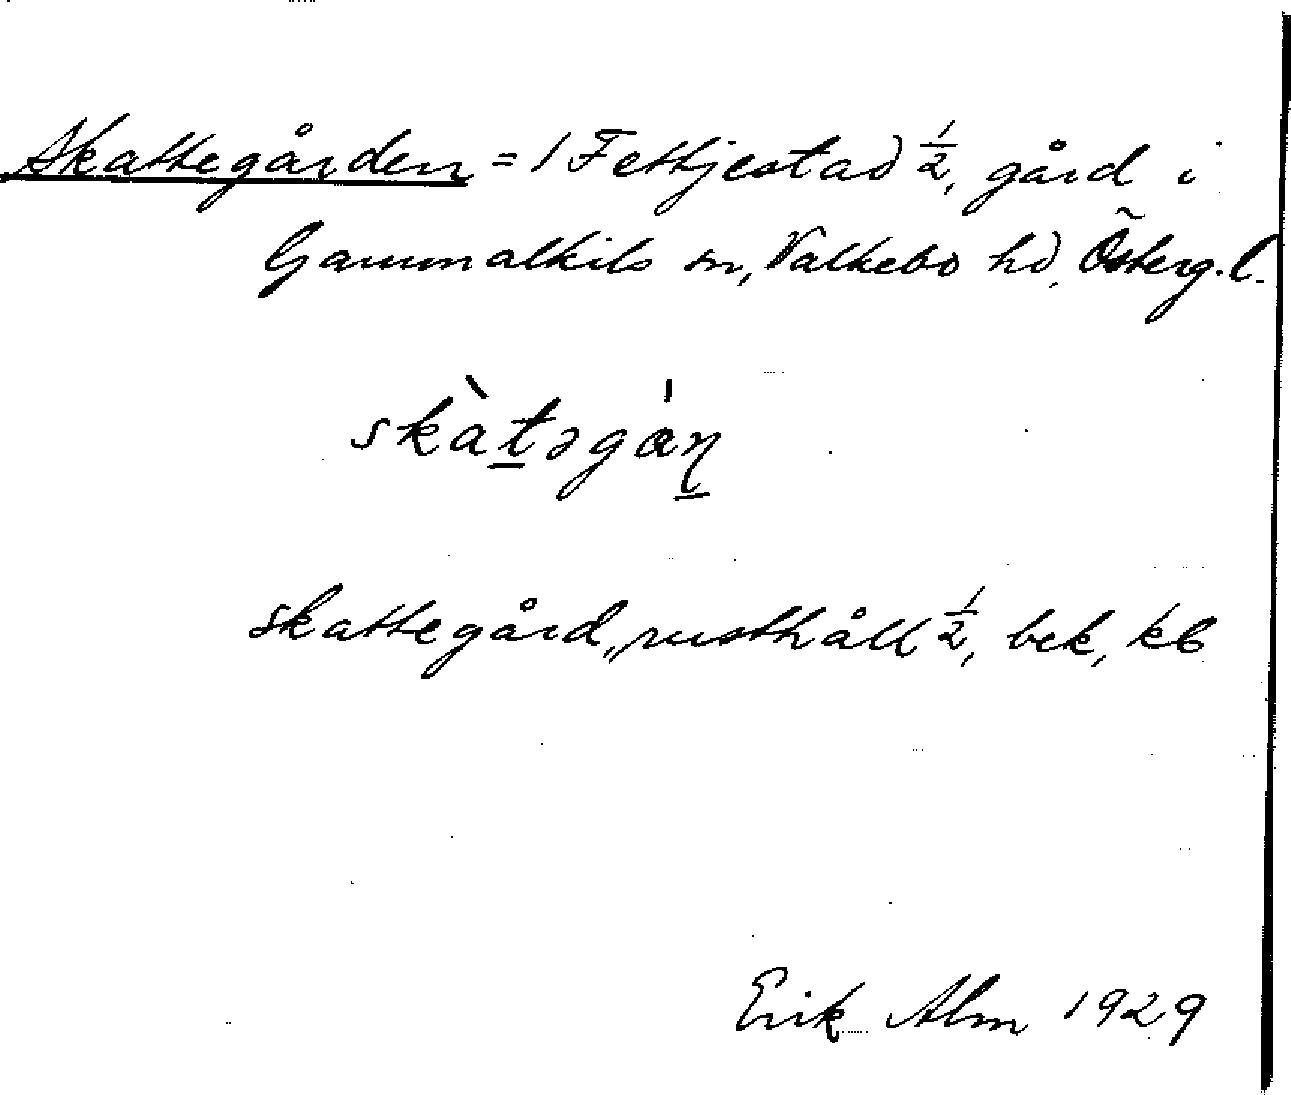 Skattegården = 1 Fettjestad ½, gård i
Gammalkils sn, Valkebo hd, Österg. l.
skàt̠əgɑ̀n̠
skattegård, rusthåll ½, bek, kb
Erik Alm 1929